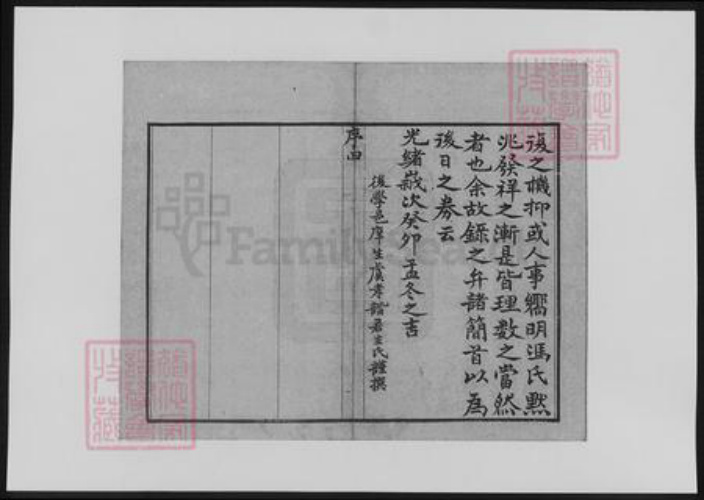 復之機抑或人事彌明馮氏默
兆發祥之漸是皆理數之當然
者也余故錄之弁諸簡首以為
後日之券云
光緒歲次癸卯孟冬之吉
後學邑庠生虞孝諧君生氏謹撰
序四
FamilySearch